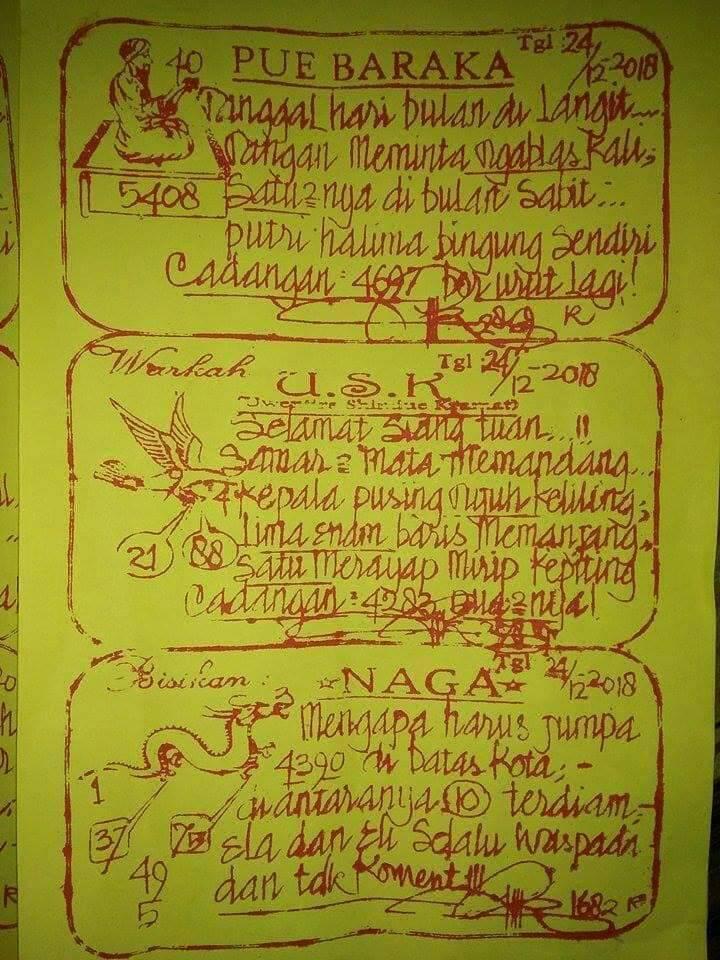 PUE BARAKA
Tgl : 24/12-2018
40
5408
Tinggal hari bulan di langit...
Tangan Meminta ngablas Kali;
Satu²nya di bulan Sabit...
putri halima bingung Sendiri
Cadangan : 4697 ber urut lagi!
R
Warkah
Tgl 24/12-2018
U.S.K
Selamat Siang tuan...!!
Samar² Mata Memandang...
Kepala pusing tujuh Keliling;
Lima enam baris Memanjang
Satu Merayap Mirip Kepiting
21
88
Cadangan : 4283 Dua²nya!
Bisikan :
Tgl 24/12-2018
NAGA
3
Mengapa harus jumpa
4390 di batas Kota; -
1
di antaranya 10 terdiam; -
37
Ela dan Eli Selalu Waspada
49
dan tdk Koment!!!
5
1682 R